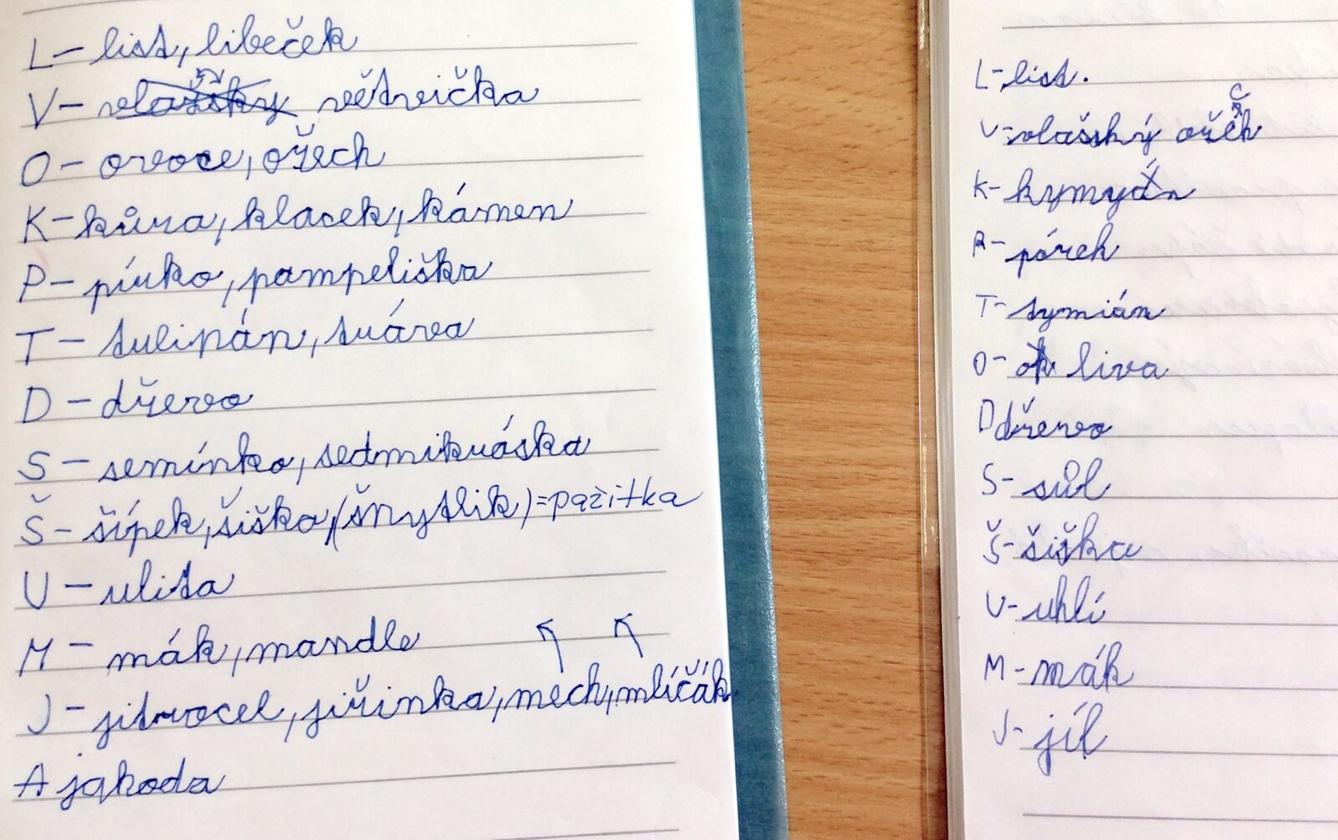 L – list, libeček
V – vlašský větvička
O – ovoce, ořech
K – kůra, klacek, kámen
P – pírko, pampeliška
T – tulipán, tráva
D – dřevo
S – semínko, sedmikráska
Š – šípek, šiška, (šnytlik) = pažitka
U – ulita
M – mák, mandle
J – jitrocel, jiřinka, mech, mlíčák
A jahoda
L – list.
V – vlašský ořech
K – kymyán
P – pórek
T – tymián
O – oliva
D dřevo
S – sůl
Š – šiška
U – uhlí
M – mák
J – jíl